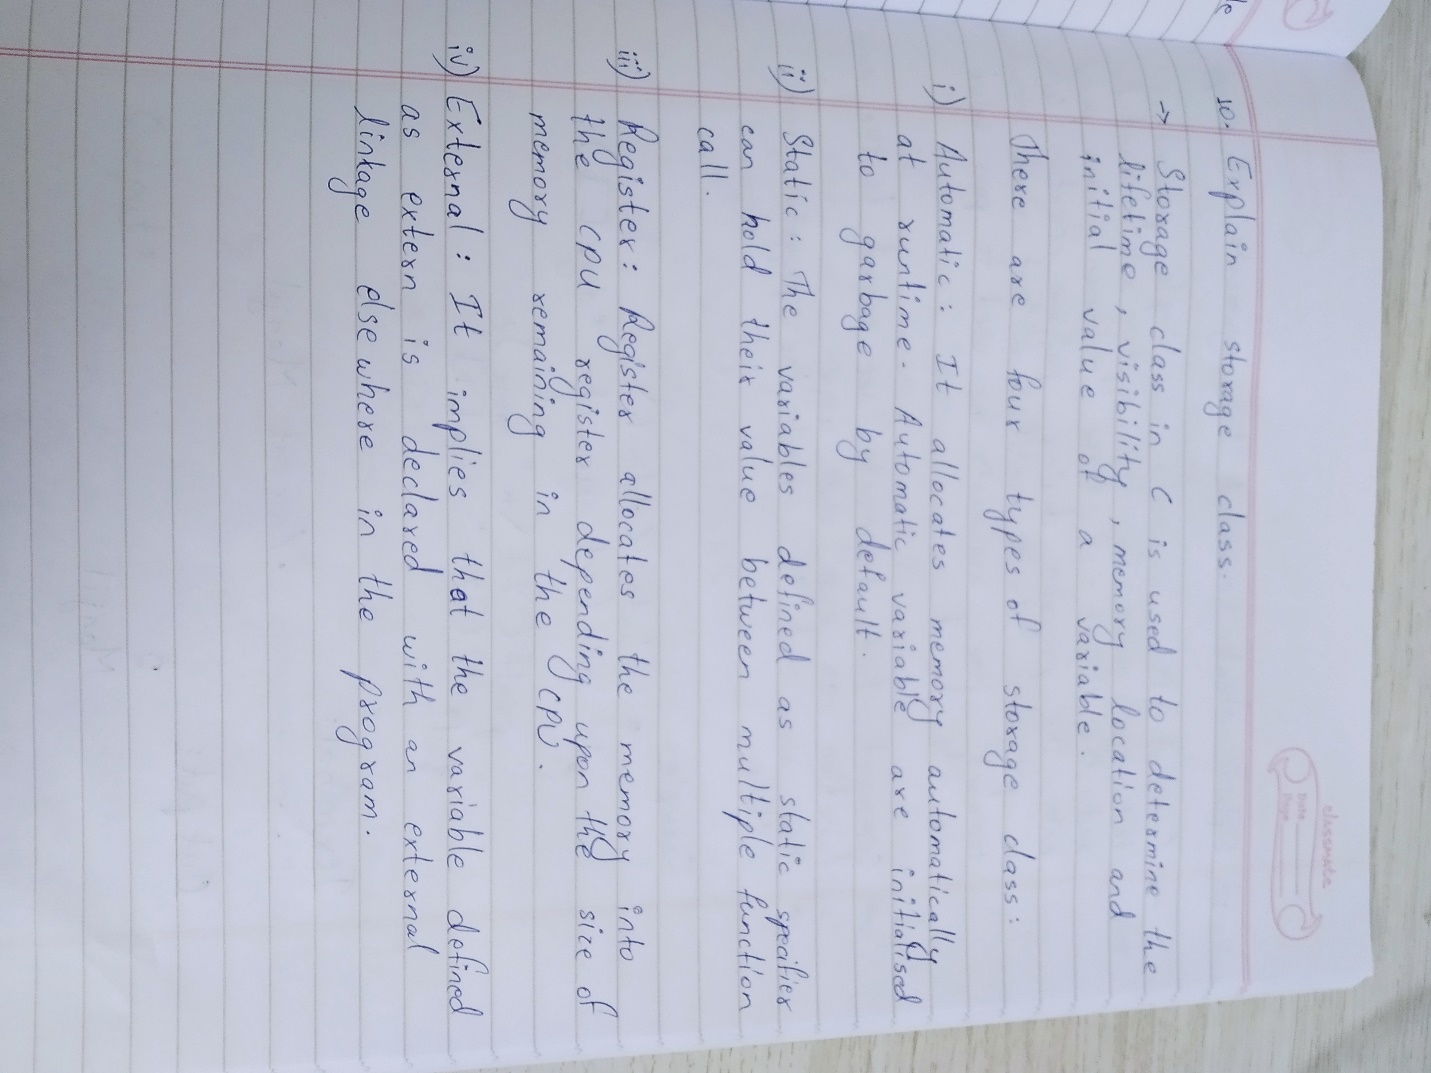 classmate
Date
Page
10. Explain storage class.
→ Storage class in C is used to determine the
lifetime, visibility, memory location and
initial value of a variable.
There are four types of storage class:
i) Automatic: It allocates memory automatically
at runtime. Automatic variable are initialised
to garbage by default.
ii) Static: The variables defined as static specifier
can hold their value between multiple function
call.
iii) Register: Register allocates the memory into
the CPU register depending upon the size of
memory remaining in the CPU.
iv) External: It implies that the variable defined
as extern is declared with an external
linkage elsewhere in the program.